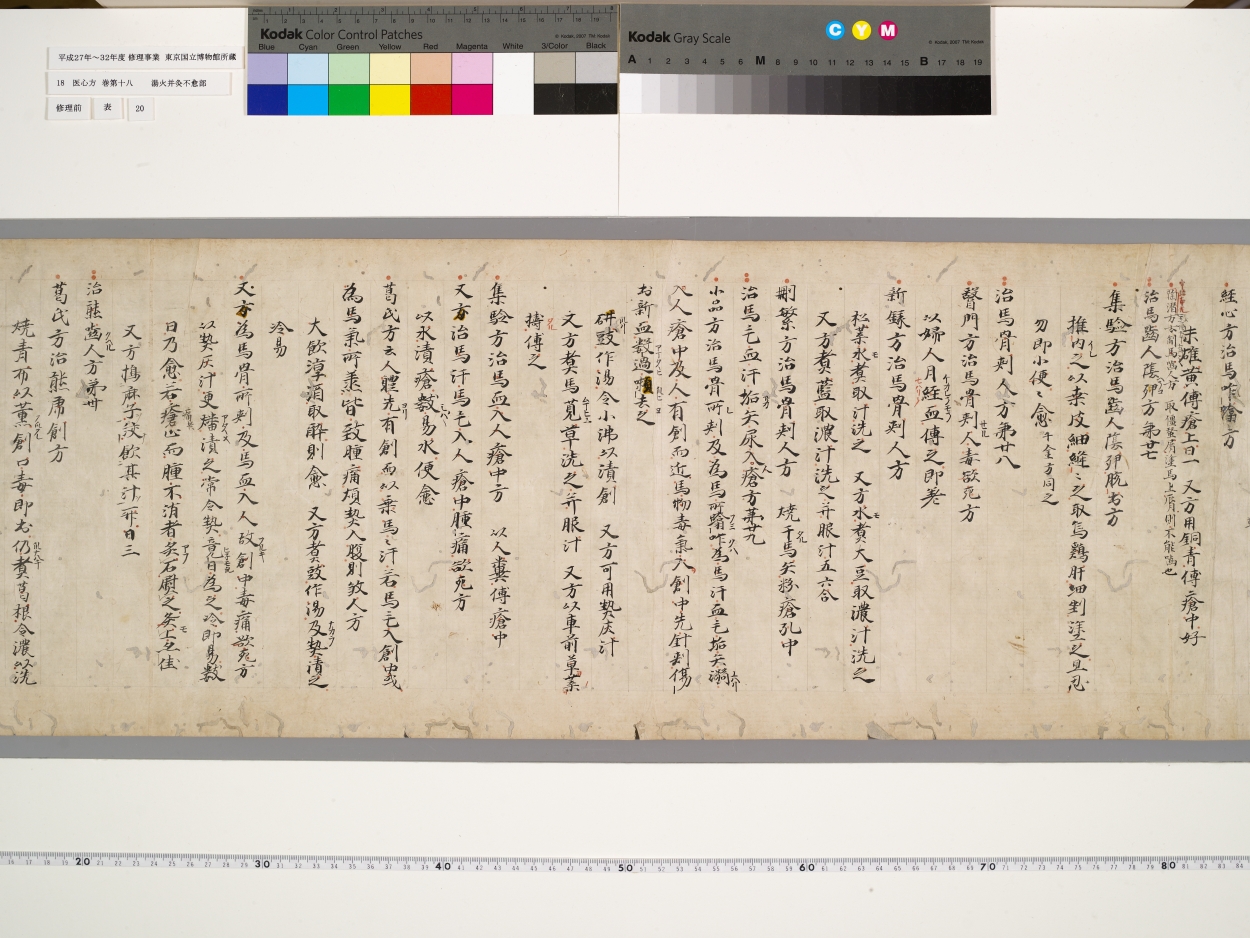 平成27年〜32年度 修理事業 東京国立博物館所蔵
18 医心方 巻第十八 湯火并灸不愈部
修理前 表 20
Kodak Color Control Patches
© Kodak, 2007 TM: Kodak
Blue Cyan Green Yellow Red Magenta White 3/Color Black
Kodak Gray Scale
C Y M
© Kodak, 2007 TM: Kodak
A 1 2 3 4 5 6 M 8 9 10 11 12 13 14 15 B 17 18 19
経心方治馬咋踰方
朱雄黄傅瘡上日一 又方用銅青傅瘡中好
治馬齧人陰卵方第廿七
集驗方治馬齧人陰卵脱出方
推内之以桒皮細縫之取烏鷄肝細剉塗之且忍
勿即小便〻愈 千金方同之
治馬骨刾人方第廿八
醫門方治馬骨刾人毒欲死方
以婦人月経血傅之即差
新録方治馬骨刾人方
松葉水煮取汁洗之 又方水煮大豆取濃汁洗之
又方煮藍取濃汁洗之并服汁五六合
刪繁方治馬骨刾人方 燒千馬矢粉瘡孔中
治馬毛血汗垢矢尿入人瘡方第廿九
小品方治馬骨所刾及為馬所踰咋為馬汗血毛垢矢溺
入人瘡中及人有創而近馬物毒氣入創中先針刾傷
出新血數過 去之
研豉作湯令小沸以漬創 又方可用熱灰汁
又方煮馬莧草洗之并服汁 又方以車前草葉
摶傅之
集驗方治馬血入人瘡中方 以人糞傅瘡中
又方治馬汗馬毛入人瘡中腫痛欲死方
以水漬瘡數易水便愈
葛氏方云人體先有創而以乗馬〻汗若馬毛入創中或
為馬氣所蒸皆致腫痛煩熱入腹則煞人方
大飲淳酒取酔則愈 又方煮豉作湯及熱漬之
冷易
又方為馬骨所刾及馬血入人故創中毒痛欲死方
以熱灰汁更燔漬之常令熱竟日為之冷即易數
日乃愈若瘡止而腫不消者炙石熨之灸上亦佳
又方搗麻子絞飲其汁一升日三
治熊齧人方第卅
葛氏方治熊虎創方
燒青布以薫創口毒即出仍煮葛根令濃以洗
20 30 40 50 60 70 80